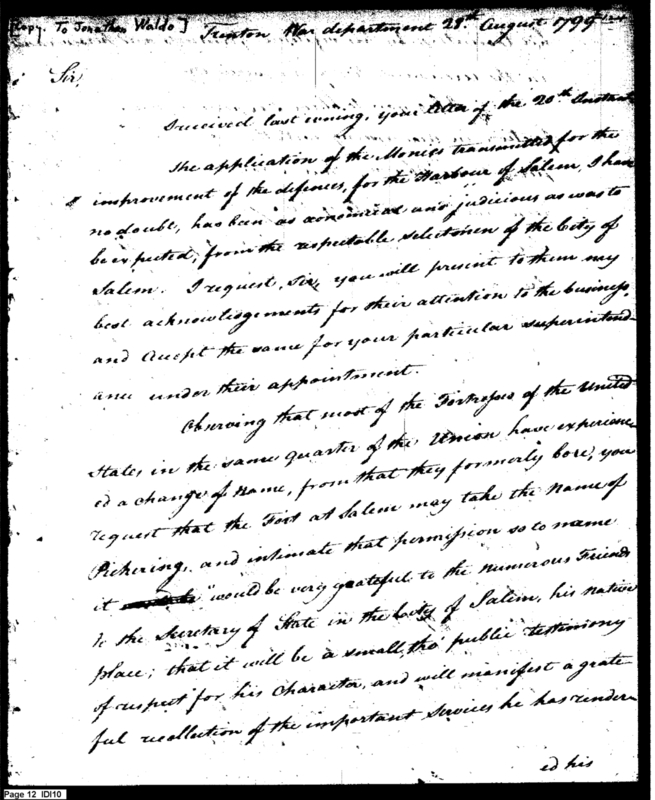 [Copy. To Jonathan Waldo] Trenton War department 28th August 1799
Sir,
I received last evening, your letter of the 20th Instant
The application of the Monies transmitted for the
improvement of the defences, for the Harbour of Salem, I have
no doubt, has been as economical and judicious as was to
be expected, from the respectable selectmen of the City of
Salem. I request, Sir, you will present to them my
best acknowledgements for their attention to the business,
and accept the same for your particular superintend-
ance under their appointment.
Observing that most of the Fortresses of the United
States, in the same quarter of the Union have experienc
ed a change of name, from that they formerly bore, you
request that the Fort at Salem may take the name of
Pickering, and intimate that permission so to name
it "would be very grateful to the numerous Friends
to the Secretary of State in the City of Salem, his native
place; that it will be a small, tho' public testimony
of respect for his character, and will manifest a grate
ful recollection of the important services he has render-
ed his
Page 12 IDI10